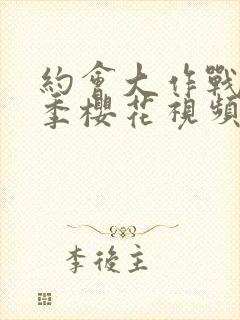 約會大作戰
季櫻花視頻
李後主